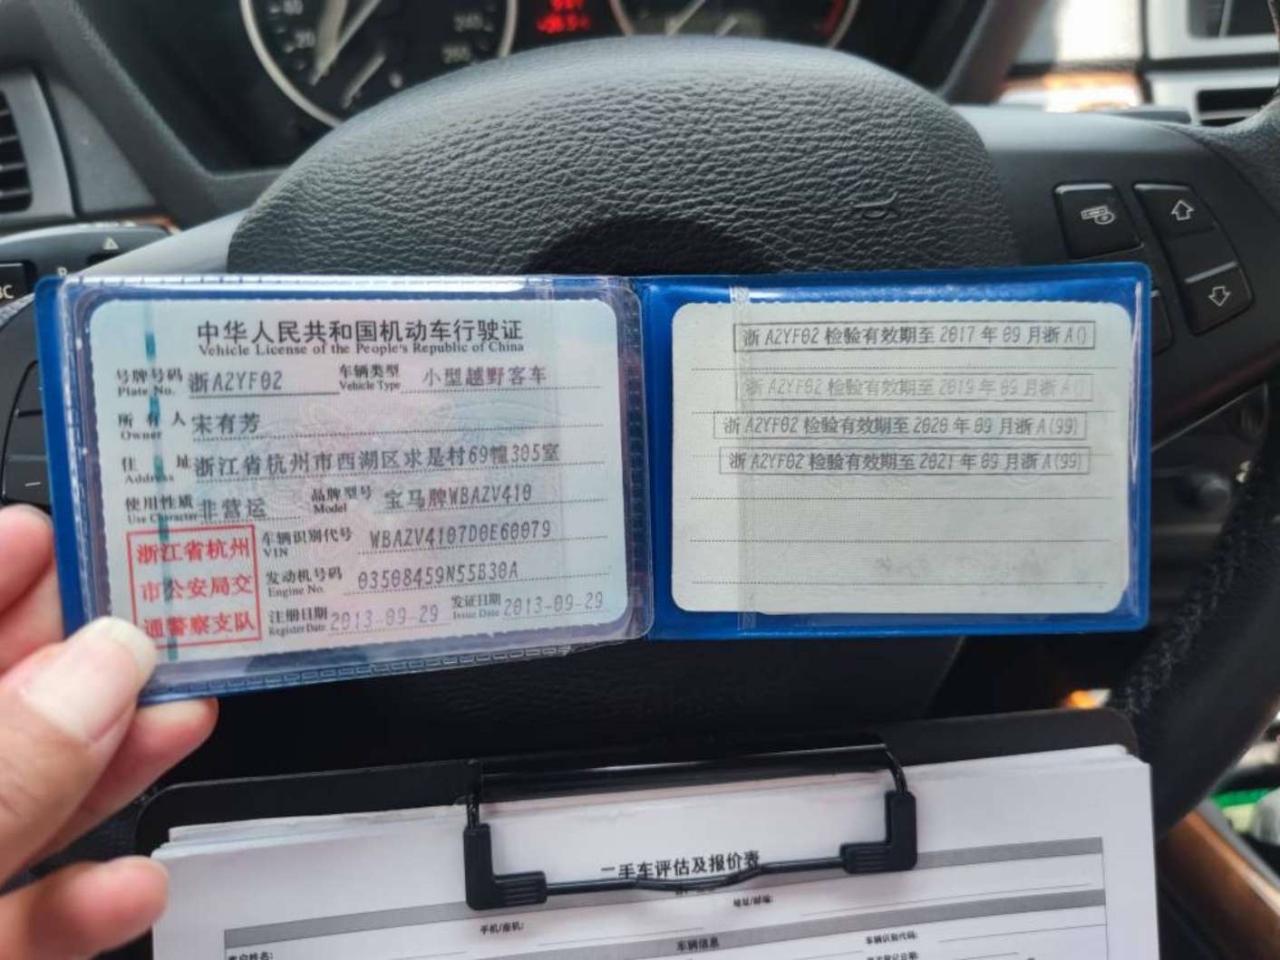 中华人民共和国机动车行驶证
Vehicle License of the People's Republic of China
号牌号码 浙A2YF02 车辆类型 小型越野客车
Plate No. Vehicle Type
所有人 宋有芳
Owner
住址 浙江省杭州市西湖区求是村69幢305室
Address
使用性质 非营运 品牌型号 宝马牌WBAZV410
Use Character Model
浙江省杭州
市公安局交
通警察支队
车辆识别代号 WBAZV4107D0E60079
VIN
发动机号码 03508459N55B30A
Engine No.
注册日期 2013-09-29 发证日期 2013-09-29
Register Date Issue Date
浙A2YF02检验有效期至2017年09月浙A()
浙A2YF02检验有效期至2019年09月浙A()
浙A2YF02检验有效期至2020年09月浙A(99)
浙A2YF02检验有效期至2021年09月浙A(99)
二手车评估及报价表
地址/邮编:
手机/座机:
车辆信息
车辆识别代码:
客户姓名: